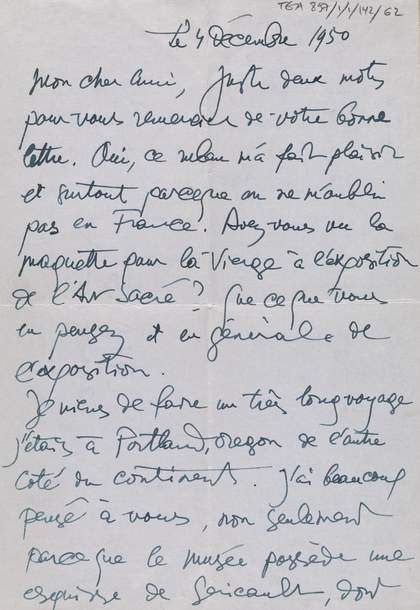 TGA 897/1/1/142/62
Le 4 Décembre 1950
Mon cher Ami, Juste deux mots
pour vous remercier de votre bonne
lettre. Oui, ce m'a fait plaisir
et surtout parceque on ne m'oublie
pas en France. Avez vous vu la
maquette pour la Vierge à l'exposition
de l'Art Sacré? Que ce que vous
en pensez et en général de
l'exposition.
Je viens de faire un très long voyage
j'étais à Portland, Oregon de l'autre
coté du continent. J'ai beaucoup
pensé à vous, non seulement
parceque le musée possède une
esquisse de Géricault, dont